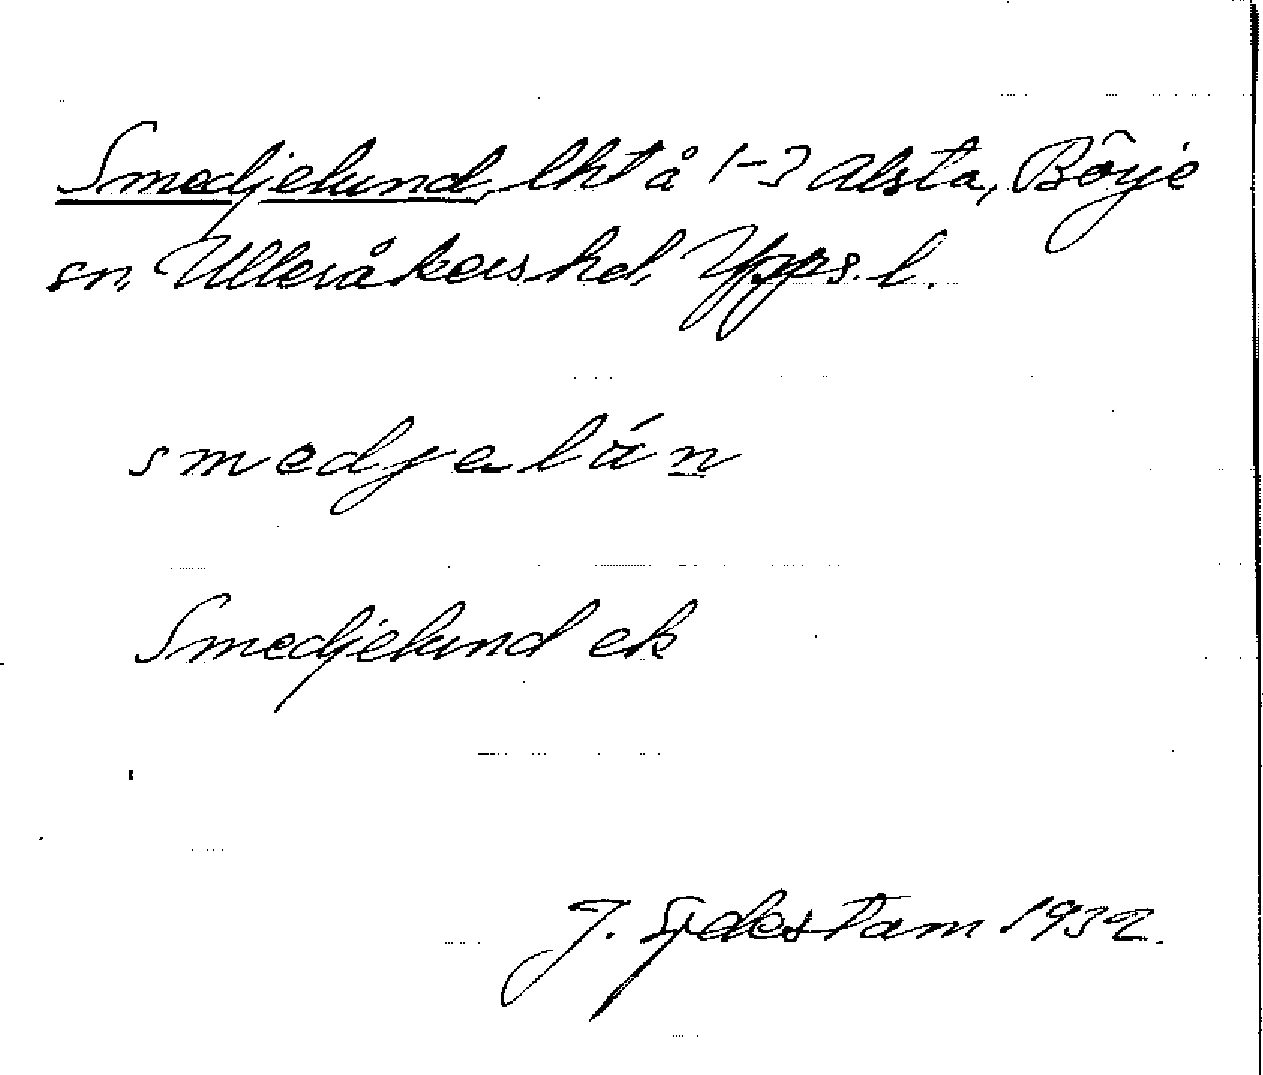 Smedjelund, lht å 1-3 Alsta, Börje
sn, Ulleråkers hd. Upps. l.
smedjelán
Smedjelund ek
J. Sydestam 1932.